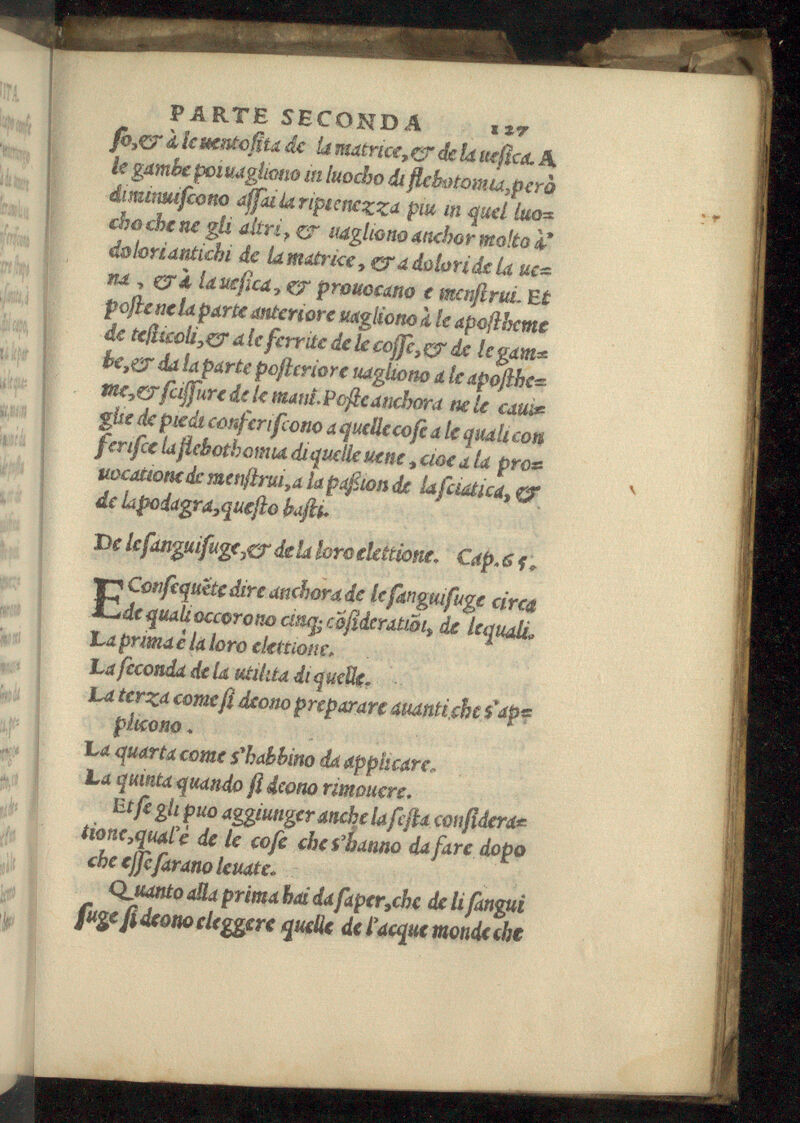 PARTE SECONDA 127
ſo, & à le uentoſita de la matrice, & de la ueſica. A
le gambe poi uagliono in luocho di flebotomia, però
diminuiſcono aſſai la ripienezza piu in quel luo=
cho che ne gli altri, & uagliono anchor molto à'
dolori antichi de la matrice, & a dolori de la ue=
na, & à la ueſica, & prouocano e menſtrui. Et
poſte ne la parte anteriore uagliono à le apoſtheme
de teſticoli, & a le ferrite de le coſſe, & de le gam=
be, & da la parte poſteriore uagliono a le apoſthe=
me, & ſciſſure de le mani. Poſte anchora ne le caui=
glie de piedi conferiſcono a quelle coſe a le quali con
feriſce la flebothomia di quelle uene, cioe a la pro=
uocatione de menſtrui, a la paſsion de la ſciatica, &
de la podagra, queſto baſti.
De le ſanguiſuge, & de la loro elettione. Cap. 65.
E Conſequẽte dire anchora de le ſanguiſuge circa
de quali occorono cinq; cõſideratiõi, de lequali.
La prima è la loro elettione.
La ſeconda de la utilita di quelle.
La terza come ſi deono preparare auanti che s'ap=
plicono.
La quarta come s'habbino da applicare.
La quinta quando ſi deono rimouere.
Et ſe gli puo aggiunger anche la ſeſta conſidera=
tione, qual'é de le coſe che s'hanno da fare dopo
che eſſe ſarano leuate.
Quanto alla prima hai da ſaper, che de li ſangui
ſuge ſi deono eleggere quelle de l'acque monde che